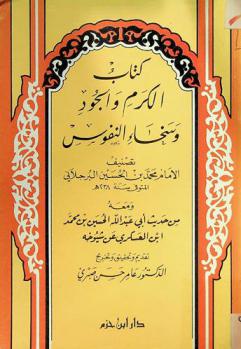 كتاب
الكرم والجود
وسخاء النفوس
تصنيف
الإمام محمد بن الحسين البرجلاني
المتوفى سنة ٢٣٨هـ
ومعه
من حديث أبي عبد الله الحسين بن محمد
ابن العسكري عن شيوخه
تقديم وتحقيق وتخريج
الدكتور عامر حسن صبري
دار ابن حزم